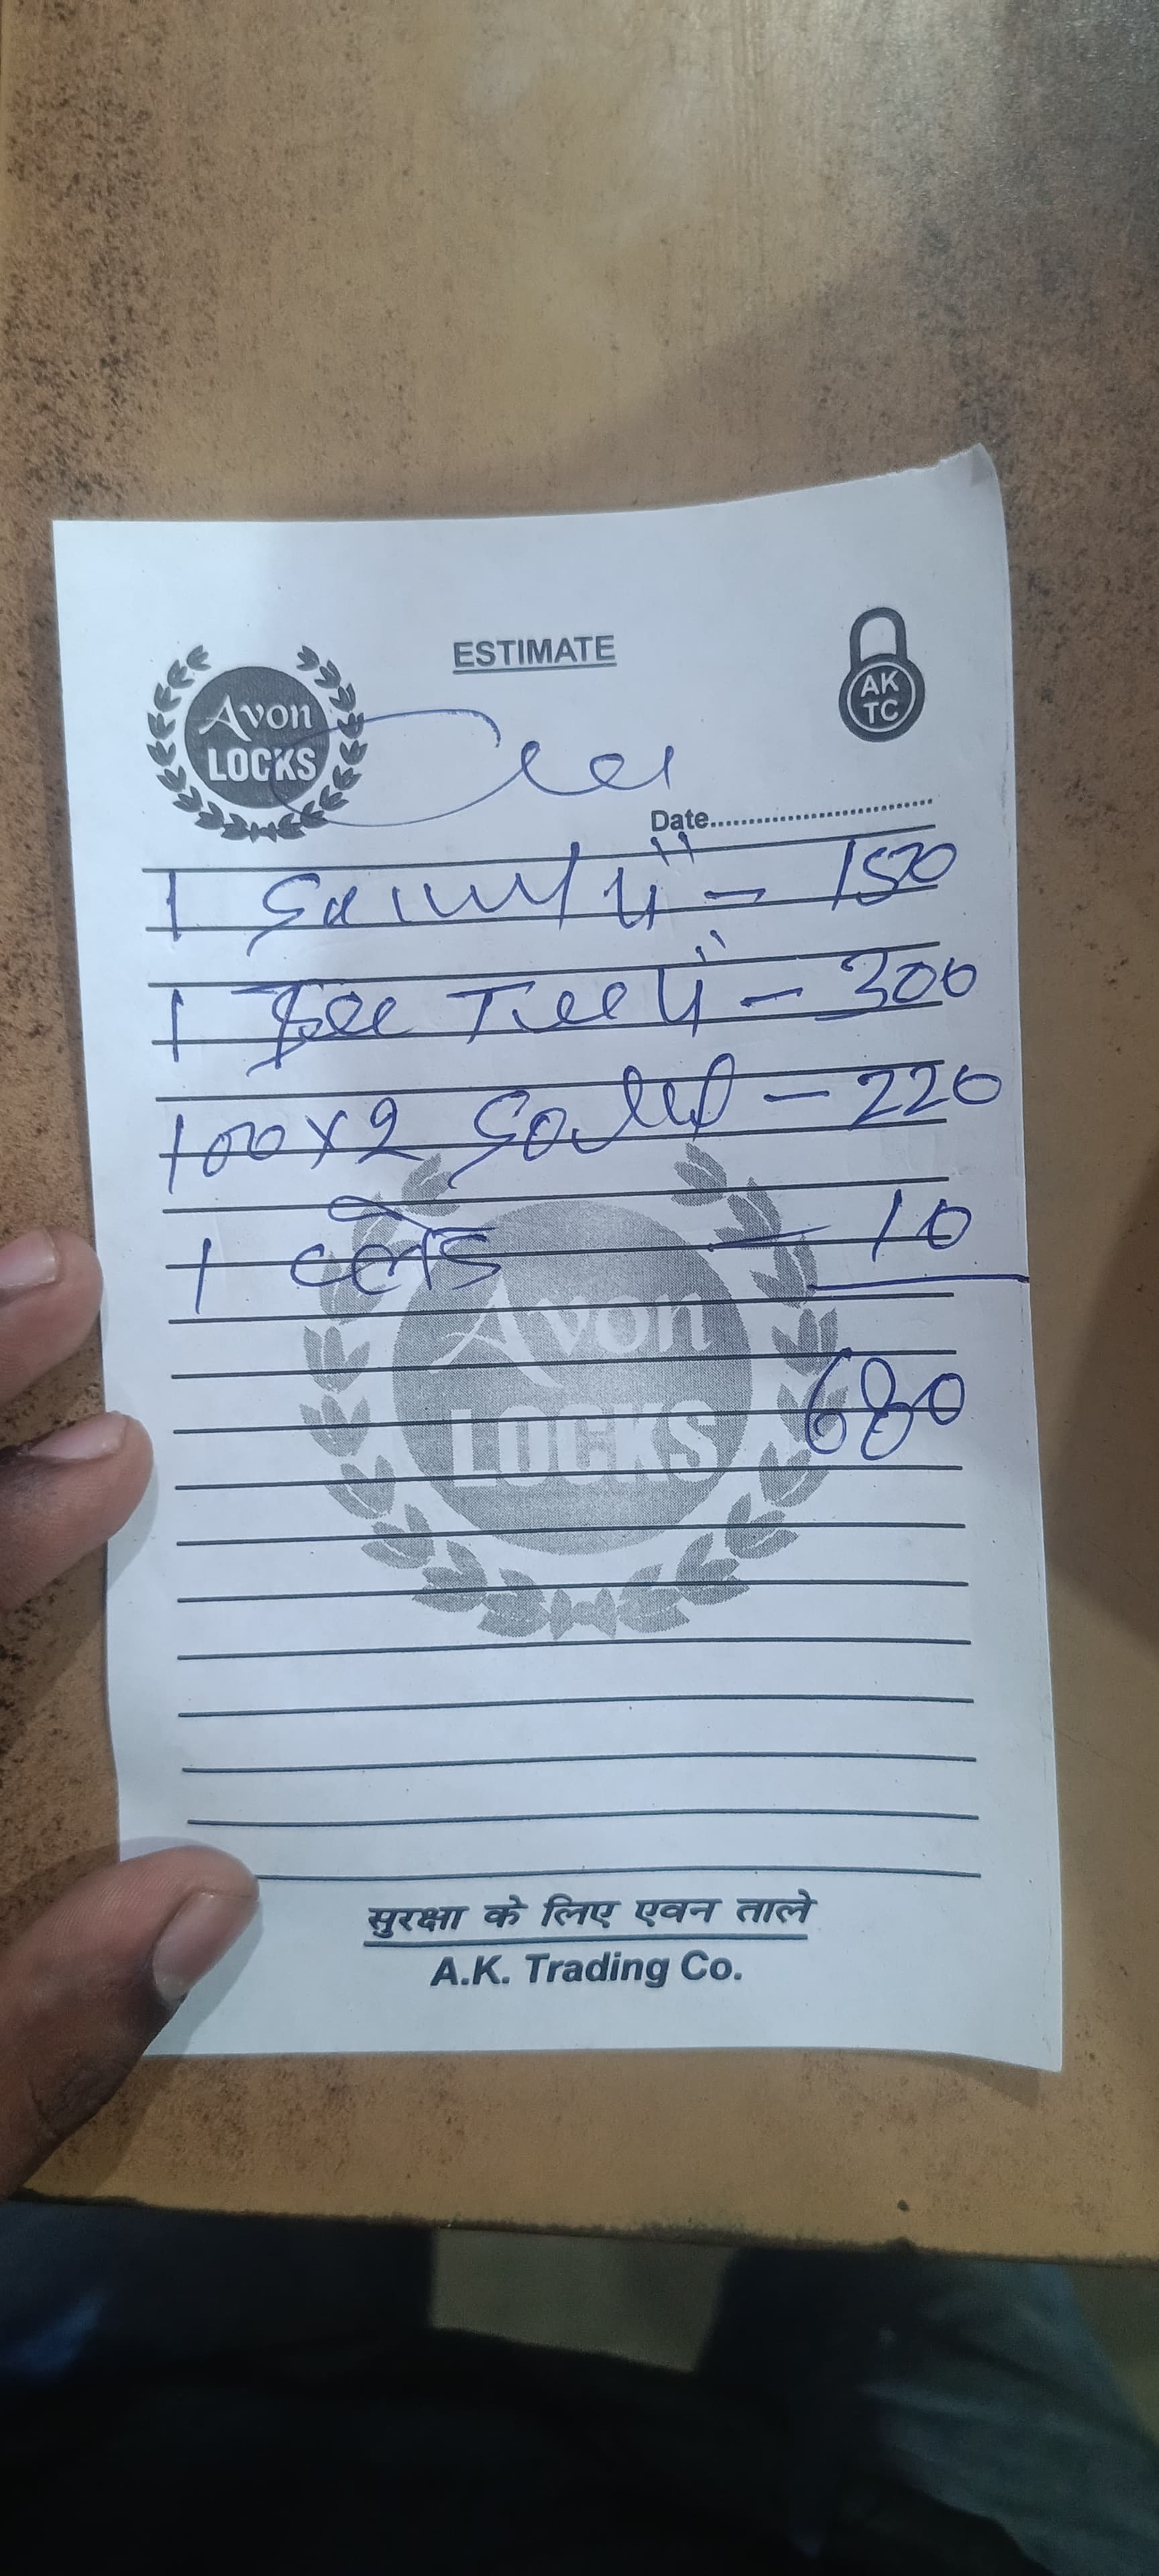 ESTIMATE
Avon
LOCKS
AK
TC
Date
1 - 150
1 - 300
100x2 - 220
1 ब्लेड - 10
680
Avon
LOCKS
सुरक्षा के लिए एवन ताले
A.K. Trading Co.